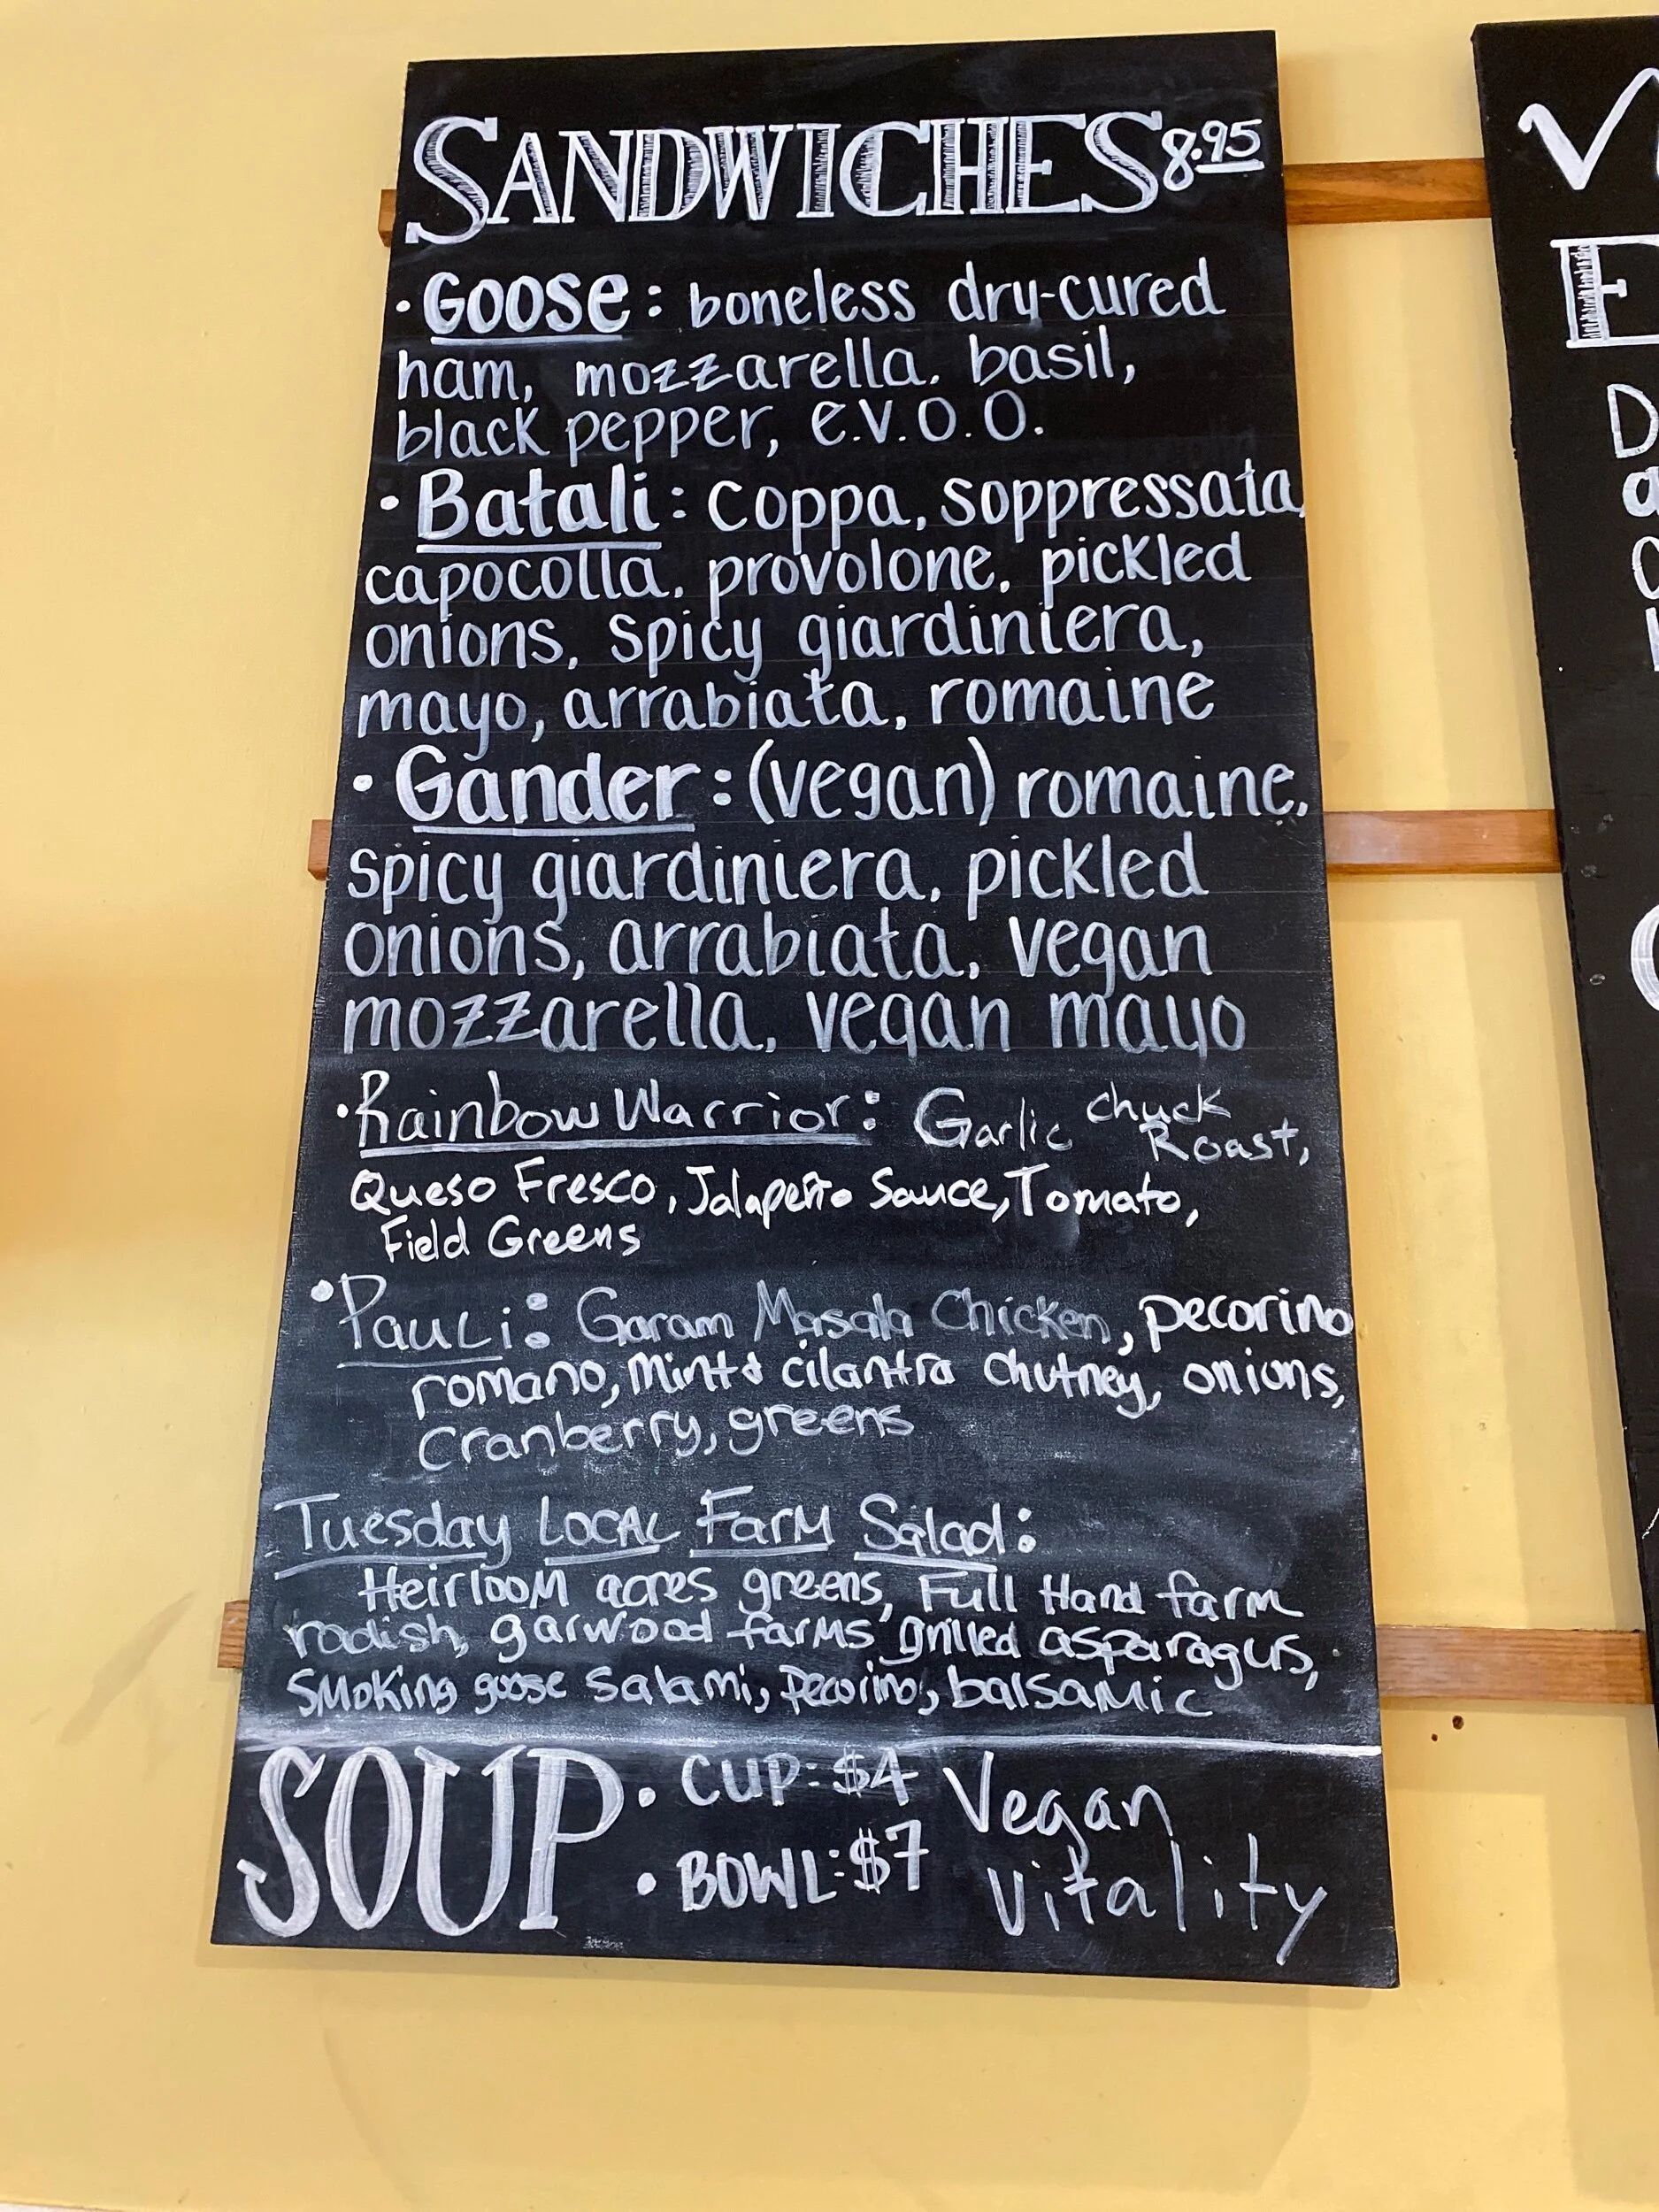 SANDWICHES 8.95
· GOOSE: boneless dry-cured
ham, mozzarella. basil,
black pepper, e.v.o.o.
· Batali: coppa, soppressata,
capocolla, provolone, pickled
onions, spicy giardiniera,
mayo, arrabiata, romaine
· Gander: (vegan) romaine,
spicy giardiniera, pickled
onions, arrabiata, vegan
mozzarella, vegan mayo
· Rainbow Warrior: Garlic chuck Roast,
Queso Fresco, Jalapeño Sauce, Tomato,
Field Greens
· Pauli: Garam Masala Chicken, pecorino
romano, mint & cilantro chutney, onions,
cranberry, greens
Tuesday LOCAL Farm Salad:
Heirloom acres greens, Full Hand farm
radish, garwood farms grilled asparagus,
smoking goose salami, pecorino, balsamic
SOUP · CUP: $4 Vegan
· BOWL: $7 Vitality